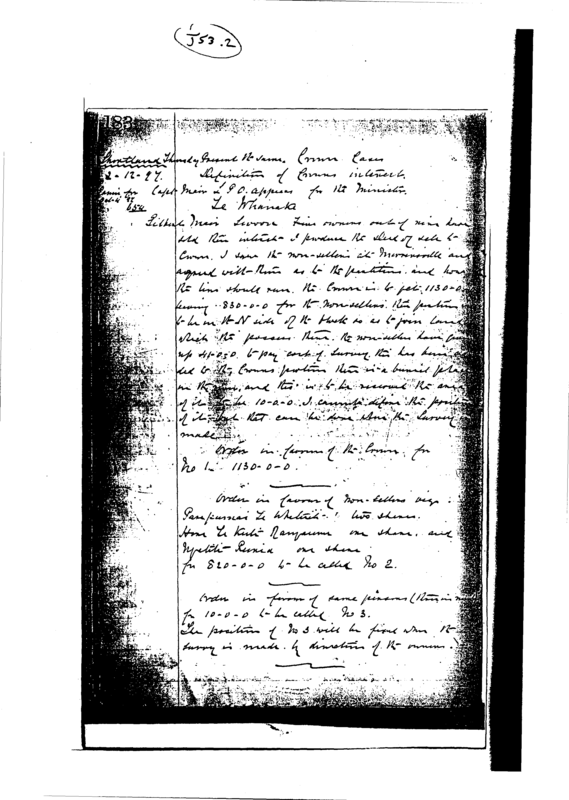 J53.2
183
Shortland Thursday Present the Same. Crown Cases
2-12-97. Definition of Crowns interest.
Capt Mair L P O. appears for the Minister
Te Whanake
Gilbert Mair Sworn Five owners out of nine have
sold their interest I produce the deed of sale to
Crown. I saw the non-sellers at Morrinsville and
agreed with them as to the partition and how
the line should run. The Crown is to get 1130-0-0
leaving 830-0-0 for the non-sellers. Their portion
to be on the N side of the block so as to join land
which they possess there. The non-sellers have given
up 41-0-0 to pay cost of survey this has been
ded to the Crowns portion There is a burial place
on the and this is to be reserved the area
of it to be 10-0-0 I cannot define the position
of it but that can be done when the survey
made
Order in favour of the Crown for
No 1 1130-0-0.
Order in favour of non-sellers viz.
Te two shares.
Hone Te one share. and
one share
for 820-0-0 to be called No 2.
Order in favour of same persons
for 10-0-0 to be called No 3.
The position of No 3 will be fixed when the
survey is made by direction of the owners.